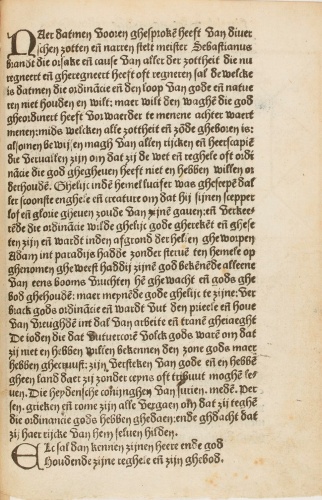 NAer datmen Vooren ghesprokē heeft Van diuer
schen zotten eñ narren stelt meister Sebastianus
brandt die orsake eñ cause van aller der zottheit die nu
regneert eñ gheregneert heeft oft regneren sal de welcke
is datmen die ordinācie eñ den loop van gode eñ natue
ren niet houden en wilt: maer wilt den waghē die god
gheordineert heeft Voerwaerder te menene achter waert
menen: mids welcken alle zottheit eñ zōde gheboren is:
alsomen bewijsen magh van allen rijcken eñ heerscapiē
die Veruallen zijn om dat zij de wet eñ reghele oft ordi
nācie die god ghegheuen heeft niet en hebben willen or
derhoudē. Ghelijc indē hemel lucifer was ghescepē dal
ler scoonste enghele eñ creature om dat hij sijnen scepper
lof eñ glorie gheuen zoude van zijne gauen: eñ Verkee
rēde die ordinācie wilde ghelijc gode gherekēt eñ ghese
ten zijn eñ wardt inden afgrond der hellen gheworpen
Adam int paradijs hadde zonder steruē ten hemele op
ghenomen ghe weest haddij zijnē god bekēnēde alleene
van eens booms Vruchten hē ghewacht eñ gods ghe
bod ghehoudē: maer meynēde gode ghelijc te zijne: Ver
brack gods ordinācie eñ wardt Vut den prieele eñ houe
van Vreughdē int dal van arbeite eñ tranē gheiaeght
De ioden die dat Vutuercorē Volck gods warē om dat
zij niet en hebben willen bekennen den zone gods maer
hebben ghecruust: zijn Versteken van gode eñ en hebbē
gheen land daer zij zonder ceyns oft tribuut moghē le-
uen. Die heydensche coninghen van surien. medē. Per
sen. grieken eñ rome zijn alle Vergaen om dat zij teghē
die ordinancie gods hebben ghedaen: ende ghdacht dat
zij haer rijcke van hem seluen hilden.
ELc sal dan kennen zijnen heere ende god
Houdende zijne reghele eñ zijn ghebod.